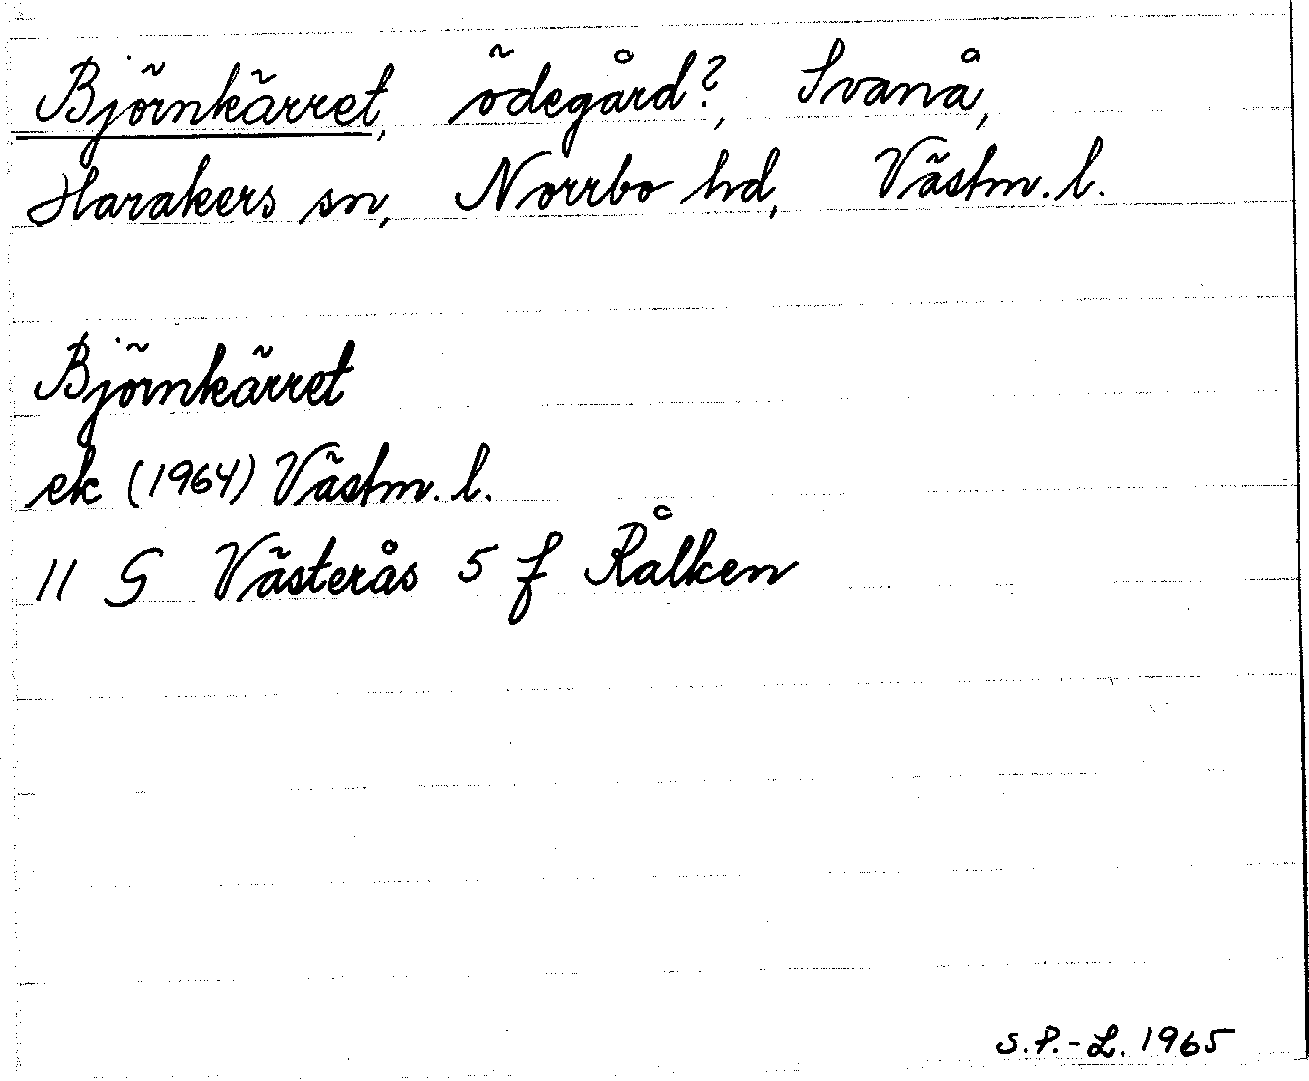 Björnkärret, ödegård?, Svanå,
Harakers sn, Norrbo hd, Västm. l.
Björnkärret
ek (1964) Västm. l.
11 G Västerås 5 f Rålken
S.P.-L. 1965